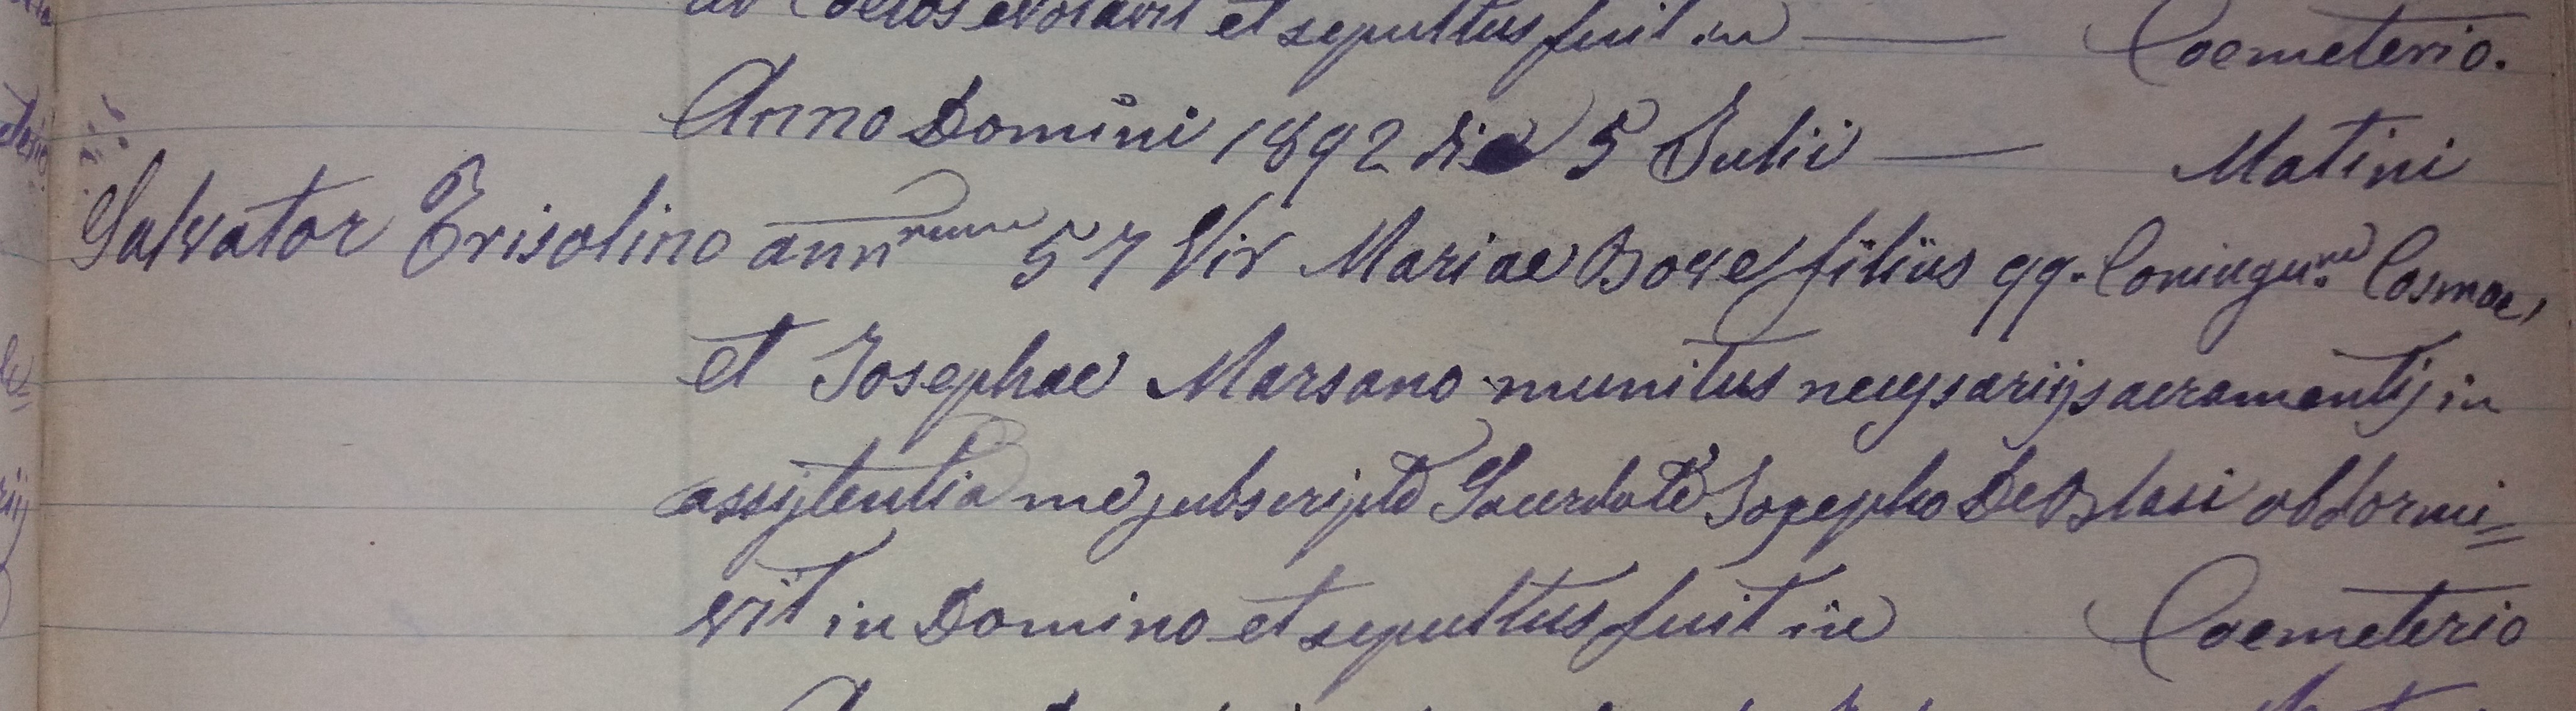 ad Coelos evolavit et sepultus fuit in — Coemeterio.
Anno Domini 1892 die 5 Julii — Matini
Salvator Trisolino ann rum 57 Vir Mariae Bove filius qq. Coniugu.m Cosmae,
et Josephae Marsano munitus necessariis sacramentis in
assistentia me subscripto Sacerdote Josepho De Blasi obdormi=
vit in Domino et sepultus fuit in Coemeterio